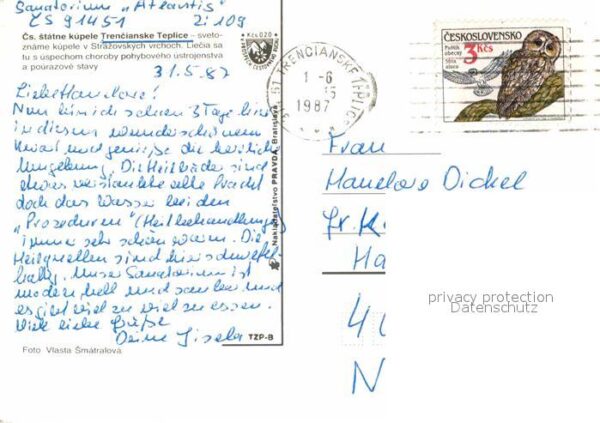 Sanatorium "Atlantis"
ČS 91451 Zi 109
Čs. štátne kúpele Trenčianske Teplice - sveto-
známe kúpele v Strážovských vrchoch. Liečia sa
tu s úspechom choroby pohybového ústrojenstva
a poúrazové stavy
Kčs 0,20
31.5.87
Liebe Hanelore!
Nun bin ich schon 3 Tage hier
in diesem wunderschönen
Kurort und genieße die herrliche
Umgebung. Die Heilbäder sind
etwas
doch das Wasser bei den
"Prozeduren" (Heilbehandlungen)
immer sehr schön warm. Die
Heilquellen sind hier schwefel-
haltig. Unser Sanatorium ist
modern, hell und sauber und
es gibt viel zu viel zu essen.
Viele liebe Grüße
Deine Gisela
Foto Vlasta Šmatralová
TZP-B
Nakladateľstvo PRAVDA, Bratislava
TRENČIANSKE TEPLICE
1-6
1987
ČESKOSLOVENSKO
3 Kčs
Puštík obecný
Strix aluco
Frau
Hanelore Dickel
Gr. K
Ha
4
N
privacy protection
Datenschutz